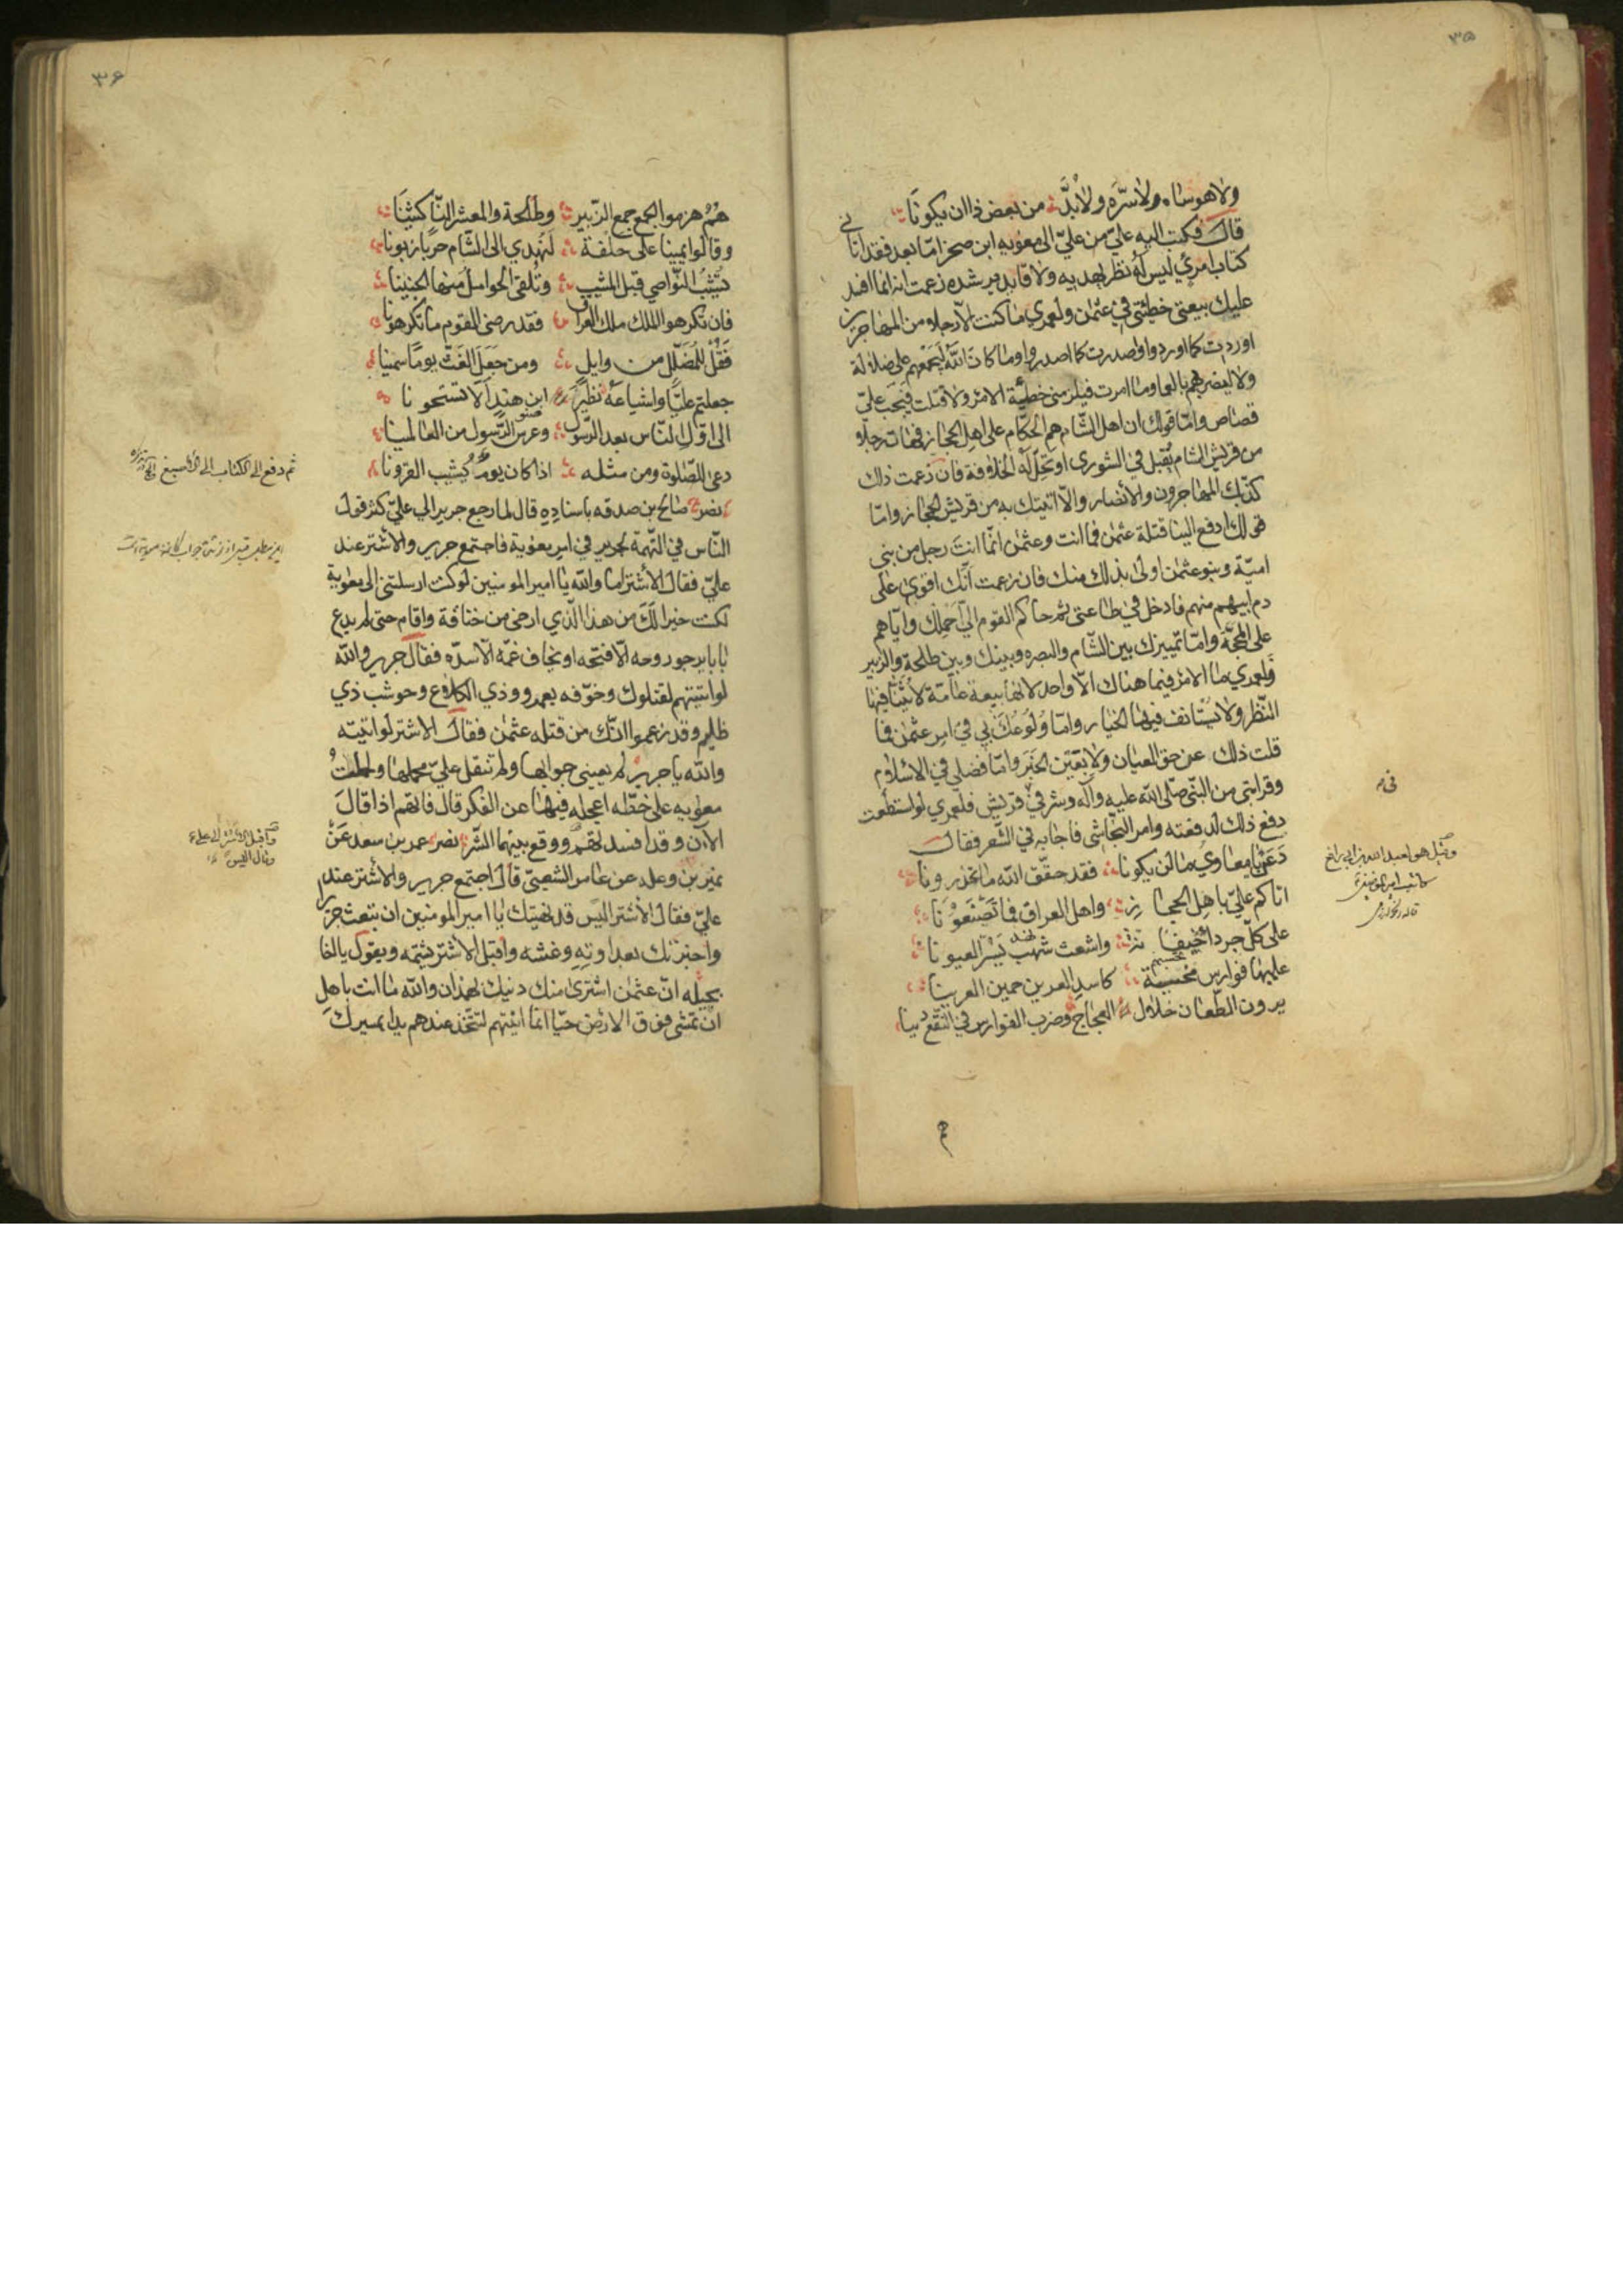 ٣٥
ولا هوساه ولا سرّه ولا بدّ من بعض ذا ان يكونا
قال فكتب اليه عليّ من عليّ الى معويه ابن صخر امّا بعد فقد اتاني
كتاب امرئ ليس له نظر يهديه ولا قايد يرشده زعمت انه انما افسد
عليك بيعتي خطئتي في عثمن ولعمري ما كنت الا رجلا من المهاجرين
اوردت كما اوردوا واصدرت كما اصدروا وما كان الله ليجمعهم على ضلالة
ولا ليضربهم بالعما وما امرت فيلزمني خطيئة الامر ولا قتلت فيجب عليّ
قصاص وامّا قولك ان اهل الشام هم الحكام على اهل الحجاز فهات رجلا
من قريش الشام يُقبل في الشورى او تحلّ له الخلافة فان زعمت ذلك
كذّبك المهاجرون والانصار والّا اتيتك به من قريش الحجاز وامّا
قولك ادفع الينا قتلة عثمن فما انت وعثمن انّما انت رجل من بني
اميّة وبنو عثمن اولى بذلك منك فان زعمت انّك اقوى على
دم ابيهم منهم فادخل في طاعتي ثم حاكم القوم اليّ احملك وايّاهم
على المحجّة وامّا تمييزك بين الشام والبصره وبينك وبين طلحة والزبير
فلعمري ما الامر فيما هناك الّا واحد لانها بيعة عامّة لا يُثنّا فيها
النّظر ولا يستانف فيها الخيار وامّا وُلُوعُك بي في امر عثمن فما
قلت ذلك عن حق العيان ولا يقين الخبر وامّا فضلي في الاسلام
وقرابتي من النبيّ صلّى الله عليه وآله وشرفي في قريش فلعمري لو استطعت
دفع ذلك لدفعته وامر النجاشي فاجابه في الشّعر فقال
دَعَنْ يا معاويُ ما لن يكونا فقد حقّق الله ما تحذرونا
اتاكم عليّ باهل الحجاز واهل العراق فما تَصْنَعُوْنَا
على كلّ جرداء خيفانة واشعث نهد يَسُرّ العيونا
عليها فوارس مخشيّة كاسد العرين حمين العرينا
يرون الطّعان خلال العجاج وضرب الفوارس في النّقع دينا
هم
وقيل هو لعبيد الله بن ابي رافع
كاتب امير المؤمنين
٣٦
هُمُ هزموا الجمع جمع الزّبير وطلحة والمعشر النّاكثينَا
وقالوا يمينا على حلفة لَنُهدي الى الشّام حربا زبونا
تُشيّب النّواصي قبل المشيب وتُلقي الحوامل منها الجنينا
فان تكرهوا الملك ملك العراق فقد رضي القوم ما تكرهونا
فَقُلْ للمُضَلّل من وايل ومن جَعَلَ الغَثّ يومًا سمينا
جعلتم عليًّا واشياعَهُ نظيرَ ابن هندٍ اَلا تستحونا
الى اوّل الناس بعد الرّسول وصنو الرّسول من العالمينا
دعى للصّلوة ومن مثله اذا كان يومٌ يُشيب القرونا
نصر صالح بن صدقه باسناده قال لما رجع جرير الى عليّ كثر قول
النّاس في التّهمة لجرير في امر معوية فاجتمع جرير والاشتر عند
عليّ فقال الاشتر اما والله يا امير المومنين لو كنت ارسلتني الى معوية
لكنت خيرا لَكَ من هذا الّذي ارخى من خناقه واقام حتى لم يدع
بابا يرجو روحه الّا فتحه او يخاف غمّه الّا سدّه فقال جرير والله
لو اتيتهم لقتلوك وخوّفه بعمرو وذي الكلاع وحوشب ذي
ظليم وقد زعموا انّك من قتله عثمن فقال الاشتر لو اتيته
والله يا جرير لم يعيني جوابها ولم تثقل عليّ محملها ولحملتُ
معويه على خطّه اعجله فيها عن الفكر قال فاتهم اذا قالَ
الآن وقد افسدتهم ووقع بينهما الشّر نصر عمر بن سعد عَنْ
نمير بن وعله عن عامر الشعبيّ قال اجتمع جرير والاشتر عند
عليّ فقال الاشتر اليس قد نهيتك يا امير المومنين ان تبعث جريرا
واخبرتك بعداوته وغشه واقبل الاشتر يشتمه ويقول يا اخا
بجيله انّ عثمن اشترى منك دينك بهمذان والله ما انت باهلِ
ان تمشي فوق الارض حيّا انّما اتيتهم لتتّخذ عندهم يدا بمسيرك
ثم دفع الى الكتاب الى الاصبغ
واقبل الاشتر الى علي ع
وقال اليس